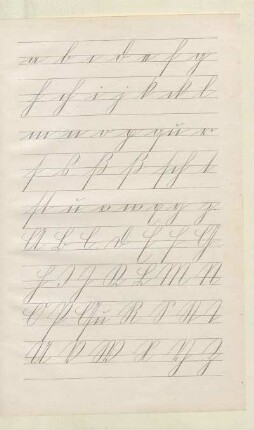 a b c d e f g
h ch i j k ck l
m n o p q qu r
s ß ß sch t
st u v w x y z
A B C D E F G
H I J K L M N
O P Qu R S St
U V W X Y Z